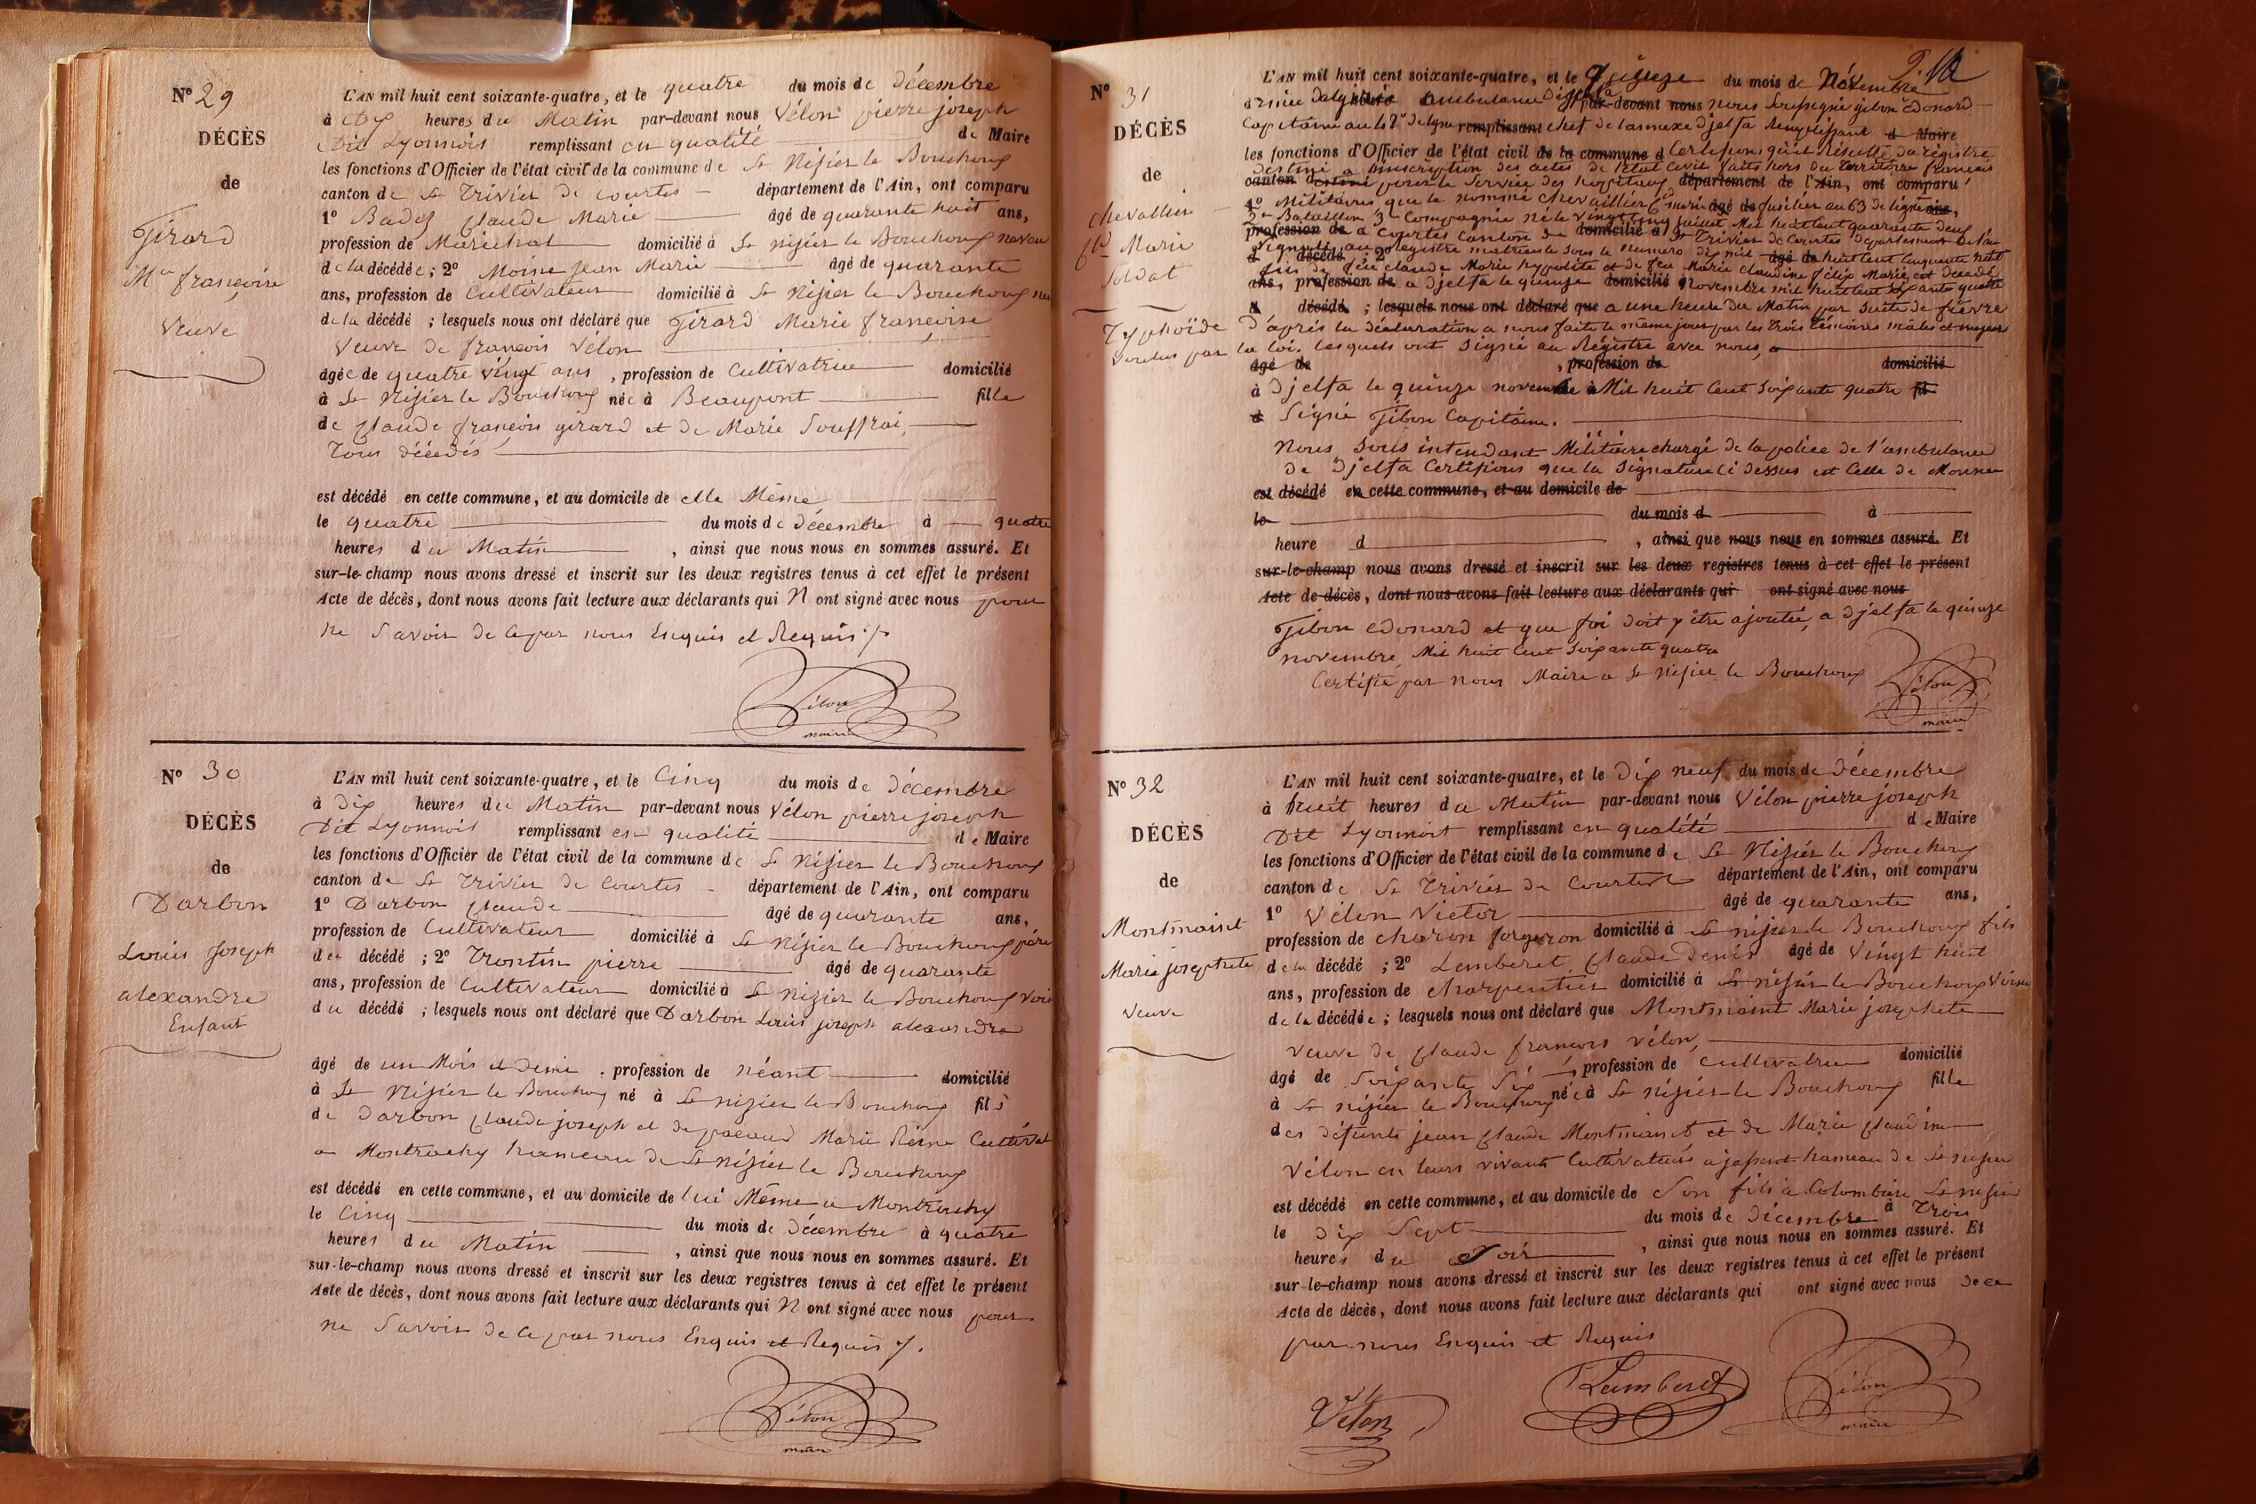 N° 29
DÉCÈS
de
Girard
Mie françoise
Veuve
L'AN mil huit cent soixante-quatre, et le quatre du mois de décembre
à dix heures du Matin par-devant nous Vélon pierre joseph
dit Lyonnois remplissant en qualité de Maire
les fonctions d'Officier de l'état civil de la commune de St Nizier le Bouchoux
canton de St Trivier de courtes département de l'Ain, ont comparu
1° claude Marie âgé de quarante huit ans,
profession de Maréchal domicilié à St nizier le Bouchoux neveu
de la décédée; 2° Moine jean Marie âgé de quarante
ans, profession de Cultivateur domicilié à St Nizier le Bouchoux
de la décédé ; lesquels nous ont déclaré que Girard Marie françoise
Veuve de françois Vélon
âgée de quatre vingt ans, profession de Cultivatrice domicilié
à St Nizier le Bouchoux née à Beaupont fille
de claude françois girard et de Marie Souffrai,
Tous décédés
est décédé en cette commune, et au domicile de elle Même
le quatre du mois de décembre à quatre
heures du Matin, ainsi que nous nous en sommes assuré. Et
sur-le-champ nous avons dressé et inscrit sur les deux registres tenus à cet effet le présent
Acte de décès, dont nous avons fait lecture aux déclarants qui N ont signé avec nous pour
ne Savoir de ce par nous Enquis et Requis
Vélon
maire
N° 30
DÉCÈS
de
Darbon
Louis Joseph
alexandre
Enfant
L'AN mil huit cent soixante-quatre, et le Cinq du mois de décembre
à dix heures du Matin par-devant nous Vélon pierre joseph
Dit Lyonnois remplissant en qualité de Maire
les fonctions d'Officier de l'état civil de la commune de St Nizier le Bouchoux
canton de St Trivier de Courtes département de l'Ain, ont comparu
1° Darbon claude âgé de quarante ans,
profession de Cultivateur domicilié à St Nizier le Bouchoux père
du décédé ; 2° Trontin pierre âgé de quarante
ans, profession de Cultivateur domicilié à St nizier le Bouchoux
du décédé ; lesquels nous ont déclaré que Darbon Louis joseph alexandre
âgé de un Mois et demi. profession de néant domicilié
à St Nizier le Bouchoux né à St nizier le Bouchoux fils
de Darbon claude joseph et de Marie Reine
a Montrachy hameau de St nizier le Bouchoux
est décédé en cette commune, et au domicile de lui Même a Montrachy
le Cinq du mois de décembre à quatre
heures du Matin, ainsi que nous nous en sommes assuré. Et
sur-le-champ nous avons dressé et inscrit sur les deux registres tenus à cet effet le présent
Acte de décès, dont nous avons fait lecture aux déclarants qui N ont signé avec nous pour
ne Savoir de ce par nous Enquis et Requis
Vélon
maire
N° 31
DÉCÈS
de
chevallier
Marie
Soldat
L'AN mil huit cent soixante-quatre, et le Quinze du mois de Novembre
armée d'algérie ambulance Djelfa par-devant nous nous Soussigné gibon Edouard
Capitaine au de ligne remplissant chef de l'annexe djelfa Remplissant d Maire
les fonctions d'Officier de l'état civil de la commune d Certifions qu'il Résulte du registre
destiné a l'inscription des actes de l'état Civil faits hors du territoire français
canton d pour le Service des hopitaux département de l'Ain, ont comparu
1° Militaires que le nommé chevallier marie âgé de fusilier au 63 de ligne ans,
2e Bataillon 3e Compagnie né le Vingt cinq juillet Mil huit cent quarante deux
profession de a Courtes Canton de domicilié à St Trivier de Courtes département de l'ain
au registre matricule sous le numero dix mil huit cent cinquante huit
fils de feu claude Marie hypolite et de feu Marie claudine félix Marie, est décédé
ans, profession de a djelfa le quinze domicilié novembre mil huit cent soixante quatre
décédé ; lesquels nous ont déclaré que a une heure du Matin par Suite de fièvre
Typhoïde d'après la déclaration a nous faite le même jour par les trois témoins mâles et majeurs
Voulus par la loi. lesquels ont Signé au Régistre avec nous,
âgé de, profession de domicilié
à Djelfa le quinze novembre Mil huit Cent Soixante quatre fil
d Signé Gibon Capitaine.
Nous Sous intendant Militaire chargé de la police de l'ambulance
de Djelfa Certifions que la Signature Ci dessus est Celle de Monsieur
est décédé en cette commune, et au domicile de
le du mois d à
heure d, ainsi que nous nous en sommes assuré. Et
sur-le-champ nous avons dressé et inscrit sur les deux registres tenus à cet effet le présent
Acte de décès, dont nous avons fait lecture aux déclarants qui ont signé avec nous
Gibon Edouard et que foi doit y être ajoutée, a Djelfa le quinze
novembre, Mil huit Cent Soixante quatre
Certifié par nous Maire a St nizier le Bouchoux
Vélon
maire
N° 32
DÉCÈS
de
Montmaint
Marie josephete
Veuve
L'AN mil huit cent soixante-quatre, et le dix neuf du mois de décembre
à huit heures du Matin par-devant nous Vélon pierre joseph
Dit Lyonnois remplissant en qualité de Maire
les fonctions d'Officier de l'état civil de la commune de St Nizier le Bouchoux
canton de St Trivier de Courtes département de l'Ain, ont comparu
1° Vélon Victor âgé de quarante ans,
profession de charon forgeron domicilié à St nizier le Bouchoux fils
de la décédé ; 2° Lemberet claude denis âgé de Vingt huit
ans, profession de charpentier domicilié à St nizier le Bouchoux Voisin
de la décédée ; lesquels nous ont déclaré que Montmaint Marie josephete
veuve de claude francois Vélon,
âgé de Soixante Six, profession de Cultivatrice domicilié
à St nizier le Bouchoux née à St nizier le Bouchoux fille
des défunts jean claude Montmaint et de Marie claudine
Vélon en leurs vivants Cultivateurs a hameau de St nizier
est décédé en cette commune, et au domicile de Son fils a Colombier St nizier
le dix Sept du mois de décembre à Trois
heures du Soir, ainsi que nous nous en sommes assuré. Et
sur-le-champ nous avons dressé et inscrit sur les deux registres tenus à cet effet le présent
Acte de décès, dont nous avons fait lecture aux déclarants qui ont signé avec nous de ce
par nous Enquis et Requis
Vélon
Lemberet
Vélon
maire